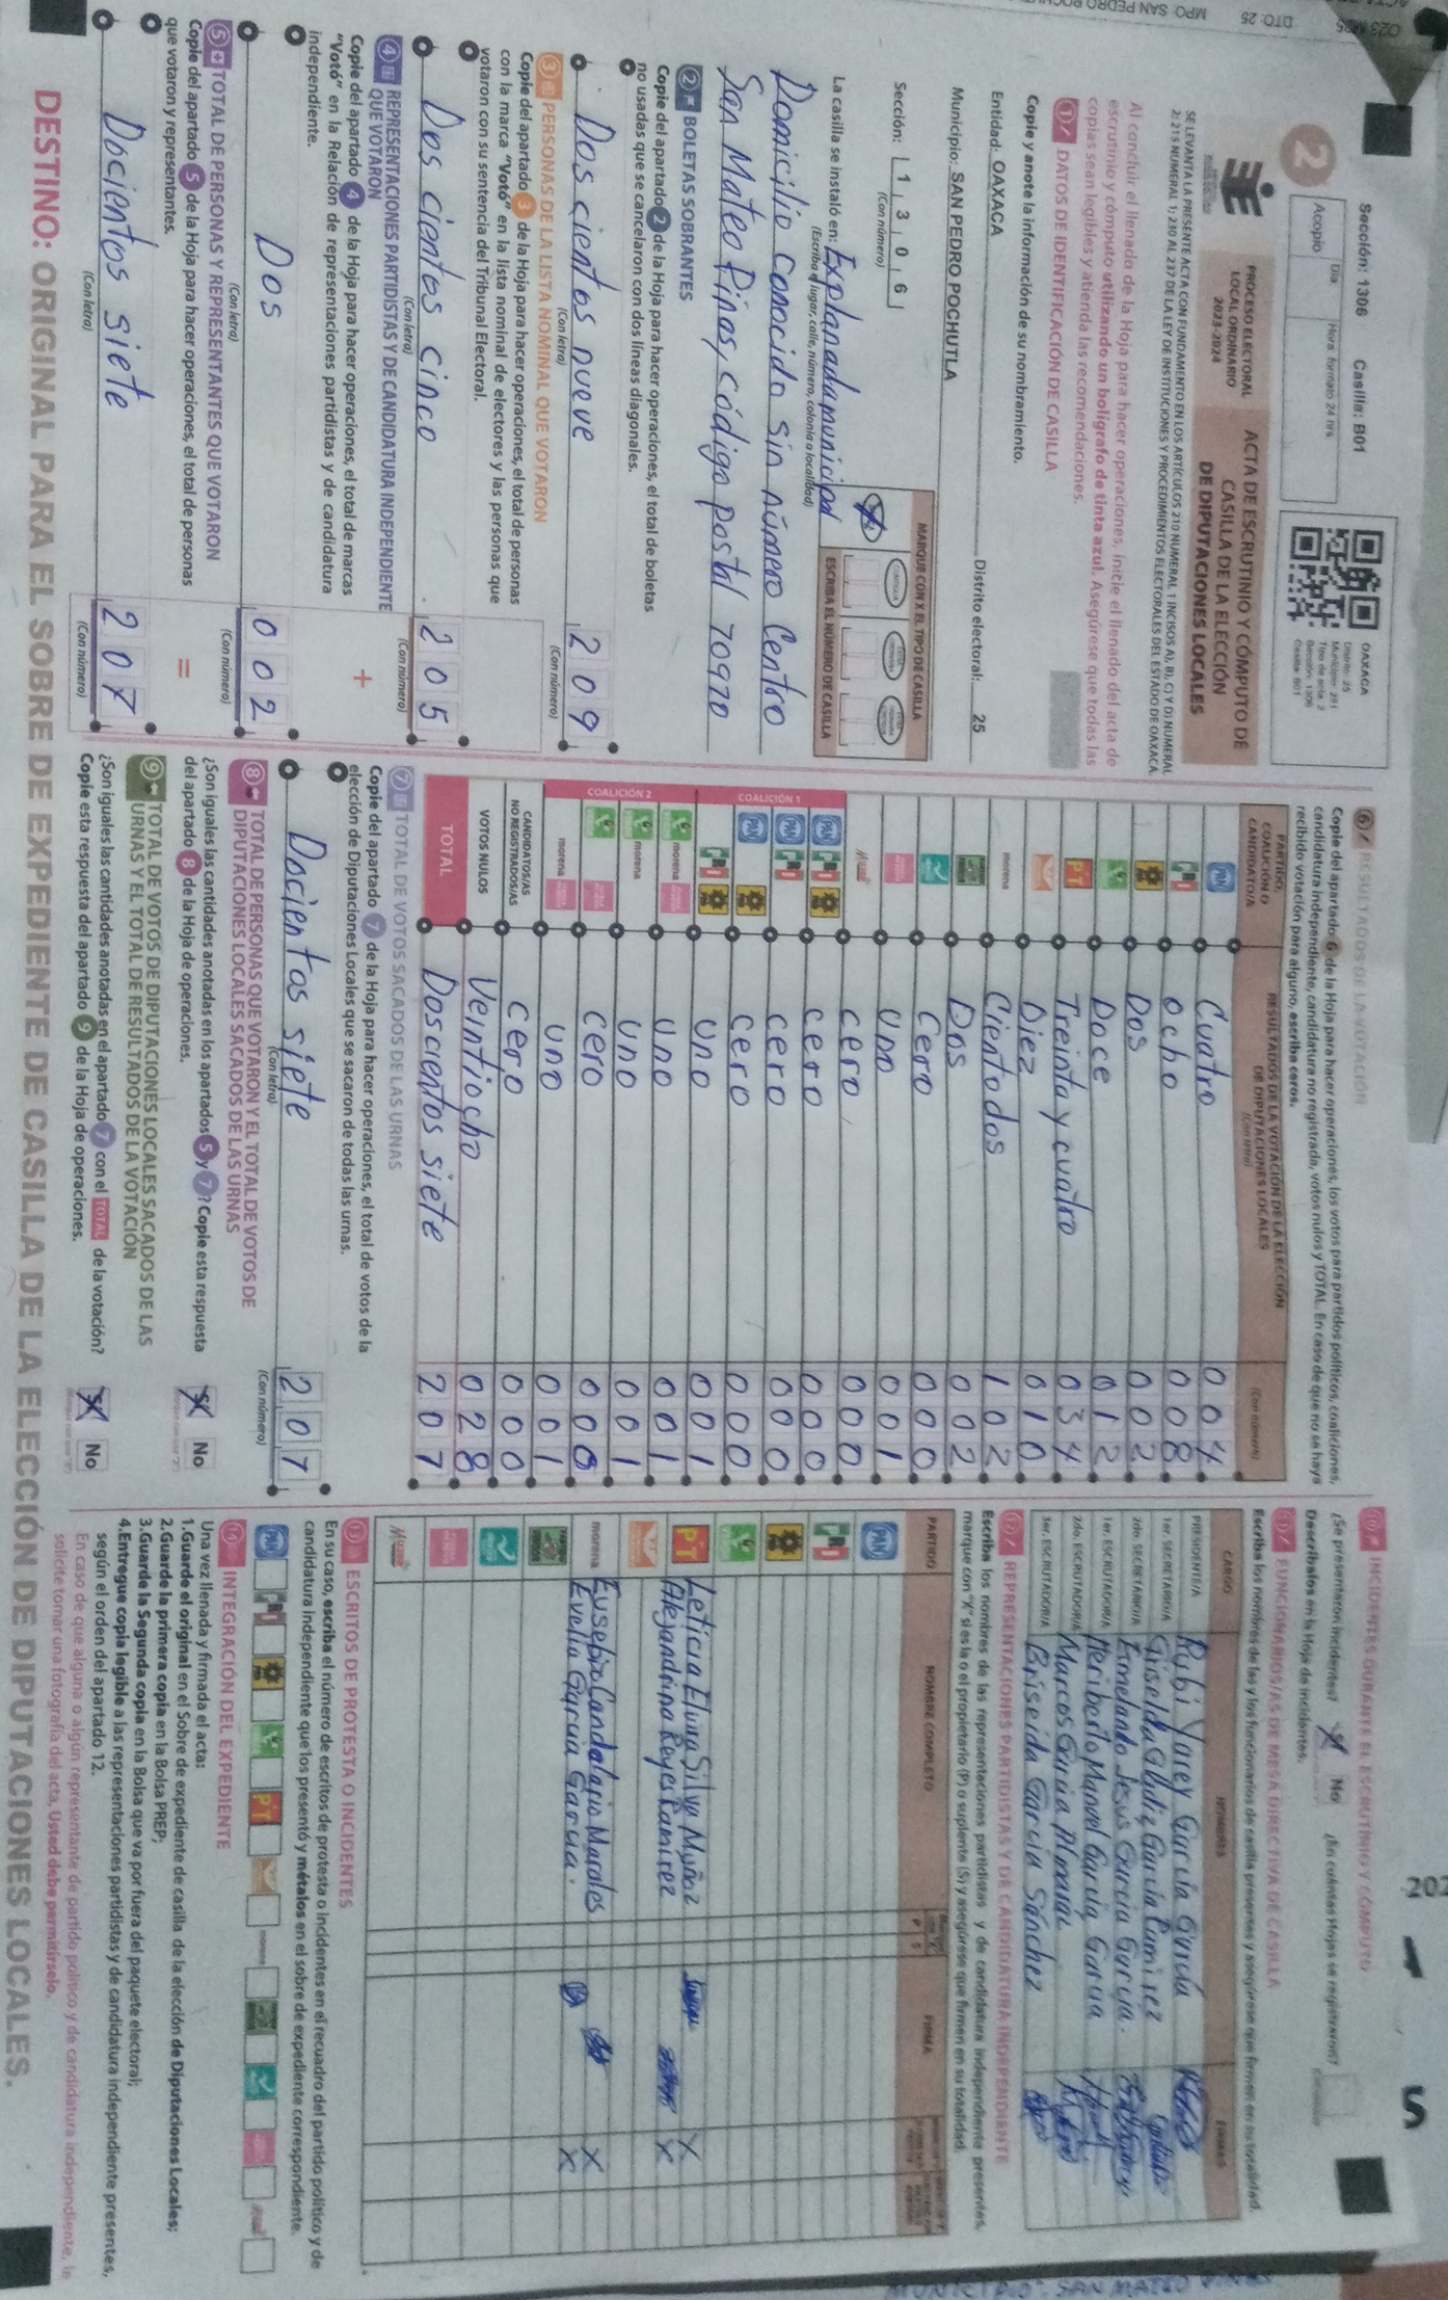 Sección: 1306 Casilla: B01
Acopio Día Hora formato 24 hrs
2
OAXACA
Distrito: 25
Tipo de acta: 2
Sección: 1306
Casilla: B01
PROCESO ELECTORAL
LOCAL ORDINARIO
2023-2024
ACTA DE ESCRUTINIO Y CÓMPUTO DE
CASILLA DE LA ELECCIÓN
DE DIPUTACIONES LOCALES
SE LEVANTA LA PRESENTE ACTA CON FUNDAMENTO EN LOS ARTÍCULOS 210 NUMERAL 1 INCISOS A), B), C) Y D) NUMERAL
2; 215 NUMERAL 1; 230 AL 237 DE LA LEY DE INSTITUCIONES Y PROCEDIMIENTOS ELECTORALES DEL ESTADO DE OAXACA.
Al concluir el llenado de la Hoja para hacer operaciones, inicie el llenado del acta de
escrutinio y cómputo utilizando un bolígrafo de tinta azul. Asegúrese que todas las
copias sean legibles y atienda las recomendaciones.
1 DATOS DE IDENTIFICACIÓN DE CASILLA
Copie y anote la información de su nombramiento.
Entidad: OAXACA Distrito electoral: 25
Municipio: SAN PEDRO POCHUTLA
Sección: 1 3 0 6
(Con número)
MARQUE CON X EL TIPO DE CASILLA
ESCRIBA EL NÚMERO DE CASILLA
La casilla se instaló en: Explanada municipal
(Escriba el lugar, calle, número, colonia o localidad)
Domicilio conocido sin número Centro
San Mateo Piñas, código postal 70970
2 BOLETAS SOBRANTES
Copie del apartado 2 de la Hoja para hacer operaciones, el total de boletas
no usadas que se cancelaron con dos líneas diagonales.
Dos cientos nueve 209
(Con letra) (Con número)
3 PERSONAS DE LA LISTA NOMINAL QUE VOTARON
Copie del apartado 3 de la Hoja para hacer operaciones, el total de personas
con la marca "Votó" en la lista nominal de electores y las personas que
votaron con su sentencia del Tribunal Electoral.
Dos cientos cinco 205
(Con letra) (Con número)
4 REPRESENTACIONES PARTIDISTAS Y DE CANDIDATURA INDEPENDIENTE
QUE VOTARON
+
Copie del apartado 4 de la Hoja para hacer operaciones, el total de marcas
"Votó" en la Relación de representaciones partidistas y de candidatura
independiente.
Dos 002
(Con letra) (Con número)
5 TOTAL DE PERSONAS Y REPRESENTANTES QUE VOTARON
=
Copie del apartado 5 de la Hoja para hacer operaciones, el total de personas
que votaron y representantes.
Docientos siete 207
(Con letra) (Con número)
6 RESULTADOS DE LA VOTACIÓN
Copie del apartado 6 de la Hoja para hacer operaciones, los votos para partidos políticos, coaliciones,
candidatura independiente, candidatura no registrada, votos nulos y TOTAL. En caso de que no se haya
recibido votación para alguno, escriba ceros.
PARTIDO, COALICIÓN O CANDIDATO/A
RESULTADOS DE LA VOTACIÓN DE LA ELECCIÓN
DE DIPUTACIONES LOCALES
(Con letra) (Con número)
PAN Cuatro 004
PRI ocho 008
PRD Dos 002
Doce 012
PT Treinta y cuatro 034
Diez 010
morena Ciento dos 102
Dos 002
Cero 000
Uno 001
cero 000
COALICIÓN 1
PAN PRI PRD cero 000
PAN PRI cero 000
PAN PRD cero 000
PRI PRD Uno 001
COALICIÓN 2
morena Uno 001
morena Uno 001
cero 000
morena uno 001
CANDIDATOS/AS
NO REGISTRADOS/AS cero 000
VOTOS NULOS Veintiocho 028
TOTAL Doscientos siete 207
7 TOTAL DE VOTOS SACADOS DE LAS URNAS
Copie del apartado 7 de la Hoja para hacer operaciones, el total de votos de la
elección de Diputaciones Locales que se sacaron de todas las urnas.
Docientos siete 207
(Con letra) (Con número)
8 TOTAL DE PERSONAS QUE VOTARON Y EL TOTAL DE VOTOS DE
DIPUTACIONES LOCALES SACADOS DE LAS URNAS
¿Son iguales las cantidades anotadas en los apartados 5 y 7? Copie esta respuesta
del apartado 8 de la Hoja de operaciones.
Sí No
9 TOTAL DE VOTOS DE DIPUTACIONES LOCALES SACADOS DE LAS
URNAS Y EL TOTAL DE RESULTADOS DE LA VOTACIÓN
¿Son iguales las cantidades anotadas en el apartado 7 con el TOTAL de la votación?
Copie esta respuesta del apartado 9 de la Hoja de operaciones.
Sí No
10 INCIDENTES DURANTE EL ESCRUTINIO Y CÓMPUTO
¿Se presentaron incidentes? Sí No ¿En cuántas Hojas se registraron?
Descríbalos en la Hoja de incidentes.
11 FUNCIONARIOS/AS DE MESA DIRECTIVA DE CASILLA
Escriba los nombres de las y los funcionarios de casilla presentes y asegúrese que firmen en su totalidad.
CARGO NOMBRES FIRMAS
PRESIDENTE/A Rubi Yarey García García
1er. SECRETARIO/A Griselda Abadie García Ramírez
2do. SECRETARIO/A Esmelando Jesus Garcia Garcia.
1er. ESCRUTADOR/A Heriberto Manuel García Garcia
2do. ESCRUTADOR/A Marcos Garcia Almaraz
3er. ESCRUTADOR/A Briseida García Sánchez
12 REPRESENTACIONES PARTIDISTAS Y DE CANDIDATURA INDEPENDIENTE
Escriba los nombres de las representaciones partidistas y de candidatura independiente presentes,
marque con "X" si es la o el propietario (P) o suplente (S) y asegúrese que firmen en su totalidad.
PARTIDO NOMBRE COMPLETO P S FIRMA
PAN
PRI
PRD
PT Leticia Elvira Silva Muñoz X
Alejandrina Reyes Ramirez X
morena Eusebio Candelario Morales X
Evelia Garcia Garcia. X
13 ESCRITOS DE PROTESTA O INCIDENTES
En su caso, escriba el número de escritos de protesta o incidentes en el recuadro del partido político y de
candidatura independiente que los presentó y métalos en el sobre de expediente correspondiente.
PAN PRI PRD PT
14 INTEGRACIÓN DEL EXPEDIENTE
Una vez llenada y firmada el acta:
1.Guarde el original en el Sobre de expediente de casilla de la elección de Diputaciones Locales;
2.Guarde la primera copia en la Bolsa PREP;
3.Guarde la Segunda copia en la Bolsa que va por fuera del paquete electoral;
4.Entregue copia legible a las representaciones partidistas y de candidatura independiente presentes,
según el orden del apartado 12.
En caso de que alguna o algún representante de partido político y de candidatura independiente, le
solicite tomar una fotografía del acta, Usted debe permitírselo.
DESTINO: ORIGINAL PARA EL SOBRE DE EXPEDIENTE DE CASILLA DE LA ELECCIÓN DE DIPUTACIONES LOCALES.
DTO: 25 MPO: SAN PEDRO
MUNICIPIO: SAN MATEO